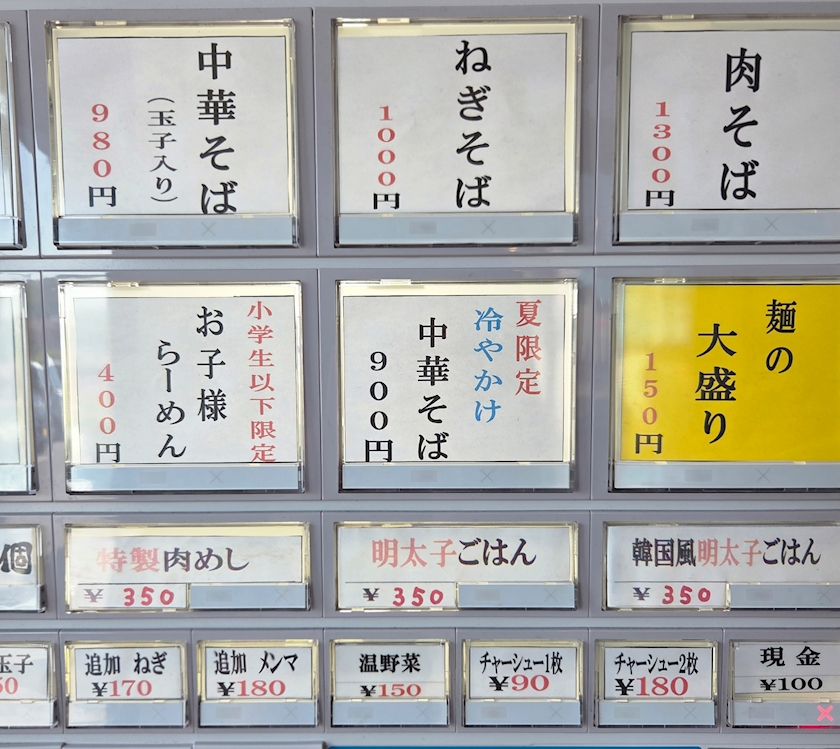 中華そば
（玉子入り）
980円
ねぎそば
1000円
肉そば
1300円
小学生以下限定
お子様
らーめん
400円
夏限定
冷やかけ
中華そば
900円
麺の
大盛り
150円
個
特製肉めし
¥ 350
明太子ごはん
¥ 350
韓国風明太子ごはん
¥ 350
玉子
50
追加 ねぎ
¥170
追加 メンマ
¥180
温野菜
¥150
チャーシュー1枚
¥90
チャーシュー2枚
¥180
現金
¥100